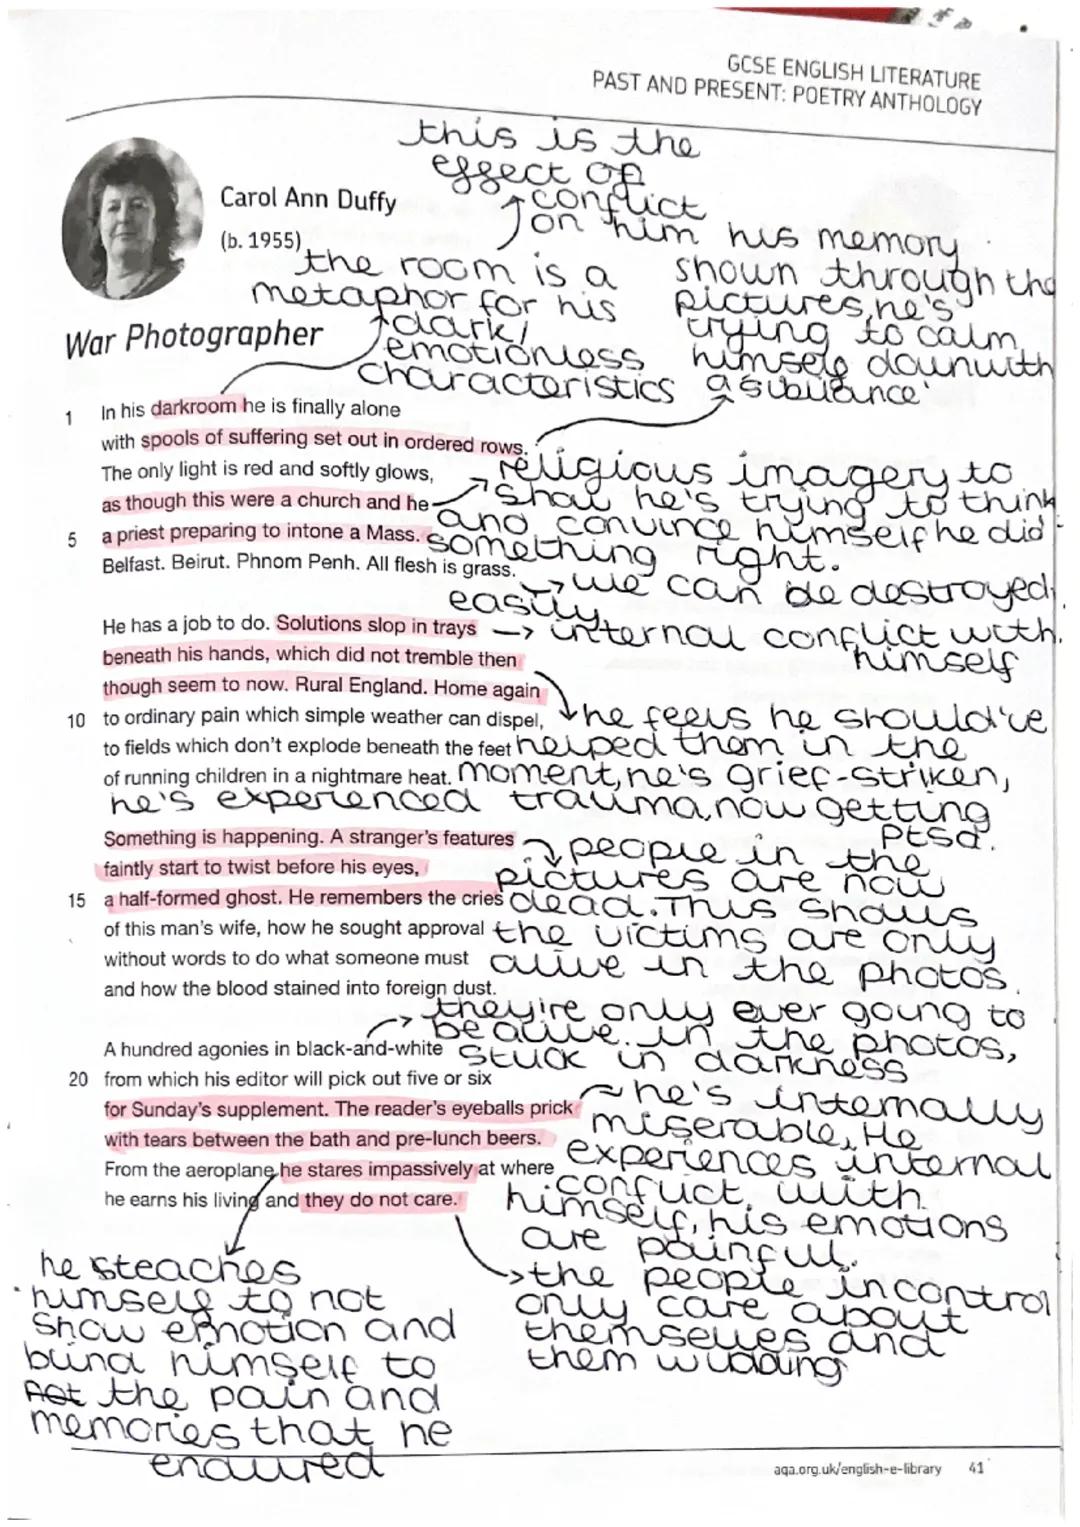 GCSE ENGLISH LITERATURE
PAST AND PRESENT: POETRY ANTHOLOGY
this is the
effect of
conflict
on him
Carol Ann Duffy
(b. 1955)
his memory
shown through the
pictures, he's
trying to calm
himself down with
a 
the room is a
metaphor for his
dark/
emotionless
characteristics
War Photographer
1 In his darkroom he is finally alone
with spools of suffering set out in ordered rows.
The only light is red and softly glows,
as though this were a church and he
5 a priest preparing to intone a Mass.
Belfast. Beirut. Phnom Penh. All flesh is grass.
religious imagery to
show he's trying to think
and convince himself he did
something right.
we can be destroyed
easily
He has a job to do. Solutions slop in trays
beneath his hands, which did not tremble then
though seem to now. Rural England. Home again
10 to ordinary pain which simple weather can dispel,
to fields which don't explode beneath the feet
of running children in a nightmare heat.
internal conflict with
himself
he feels he should've
helped them in the
moment, he's grief-striken,
he's experienced trauma, now getting
ptsd.
Something is happening. A stranger's features
faintly start to twist before his eyes,
15 a half-formed ghost. He remembers the cries
of this man's wife, how he sought approval
without words to do what someone must
and how the blood stained into foreign dust.
people in the
pictures are now
dead. This shows
the victims are only
alive in the photos.
they're only ever going to
be alive in the photos,
stuck in darkness
A hundred agonies in black-and-white
20 from which his editor will pick out five or six
for Sunday's supplement. The reader's eyeballs prick
with tears between the bath and pre-lunch beers.
From the aeroplane he stares impassively at where
he earns his living and they do not care.
he's internally
miserable, He
experiences internal
conflict with
himself, his emotions
are painful.
the people in control
only care about
themselves and
them 
he steaches
himself to not
show emotion and
blind himself to
the pain and
memories that he
endured
aqa.org.uk/english-e-library 41